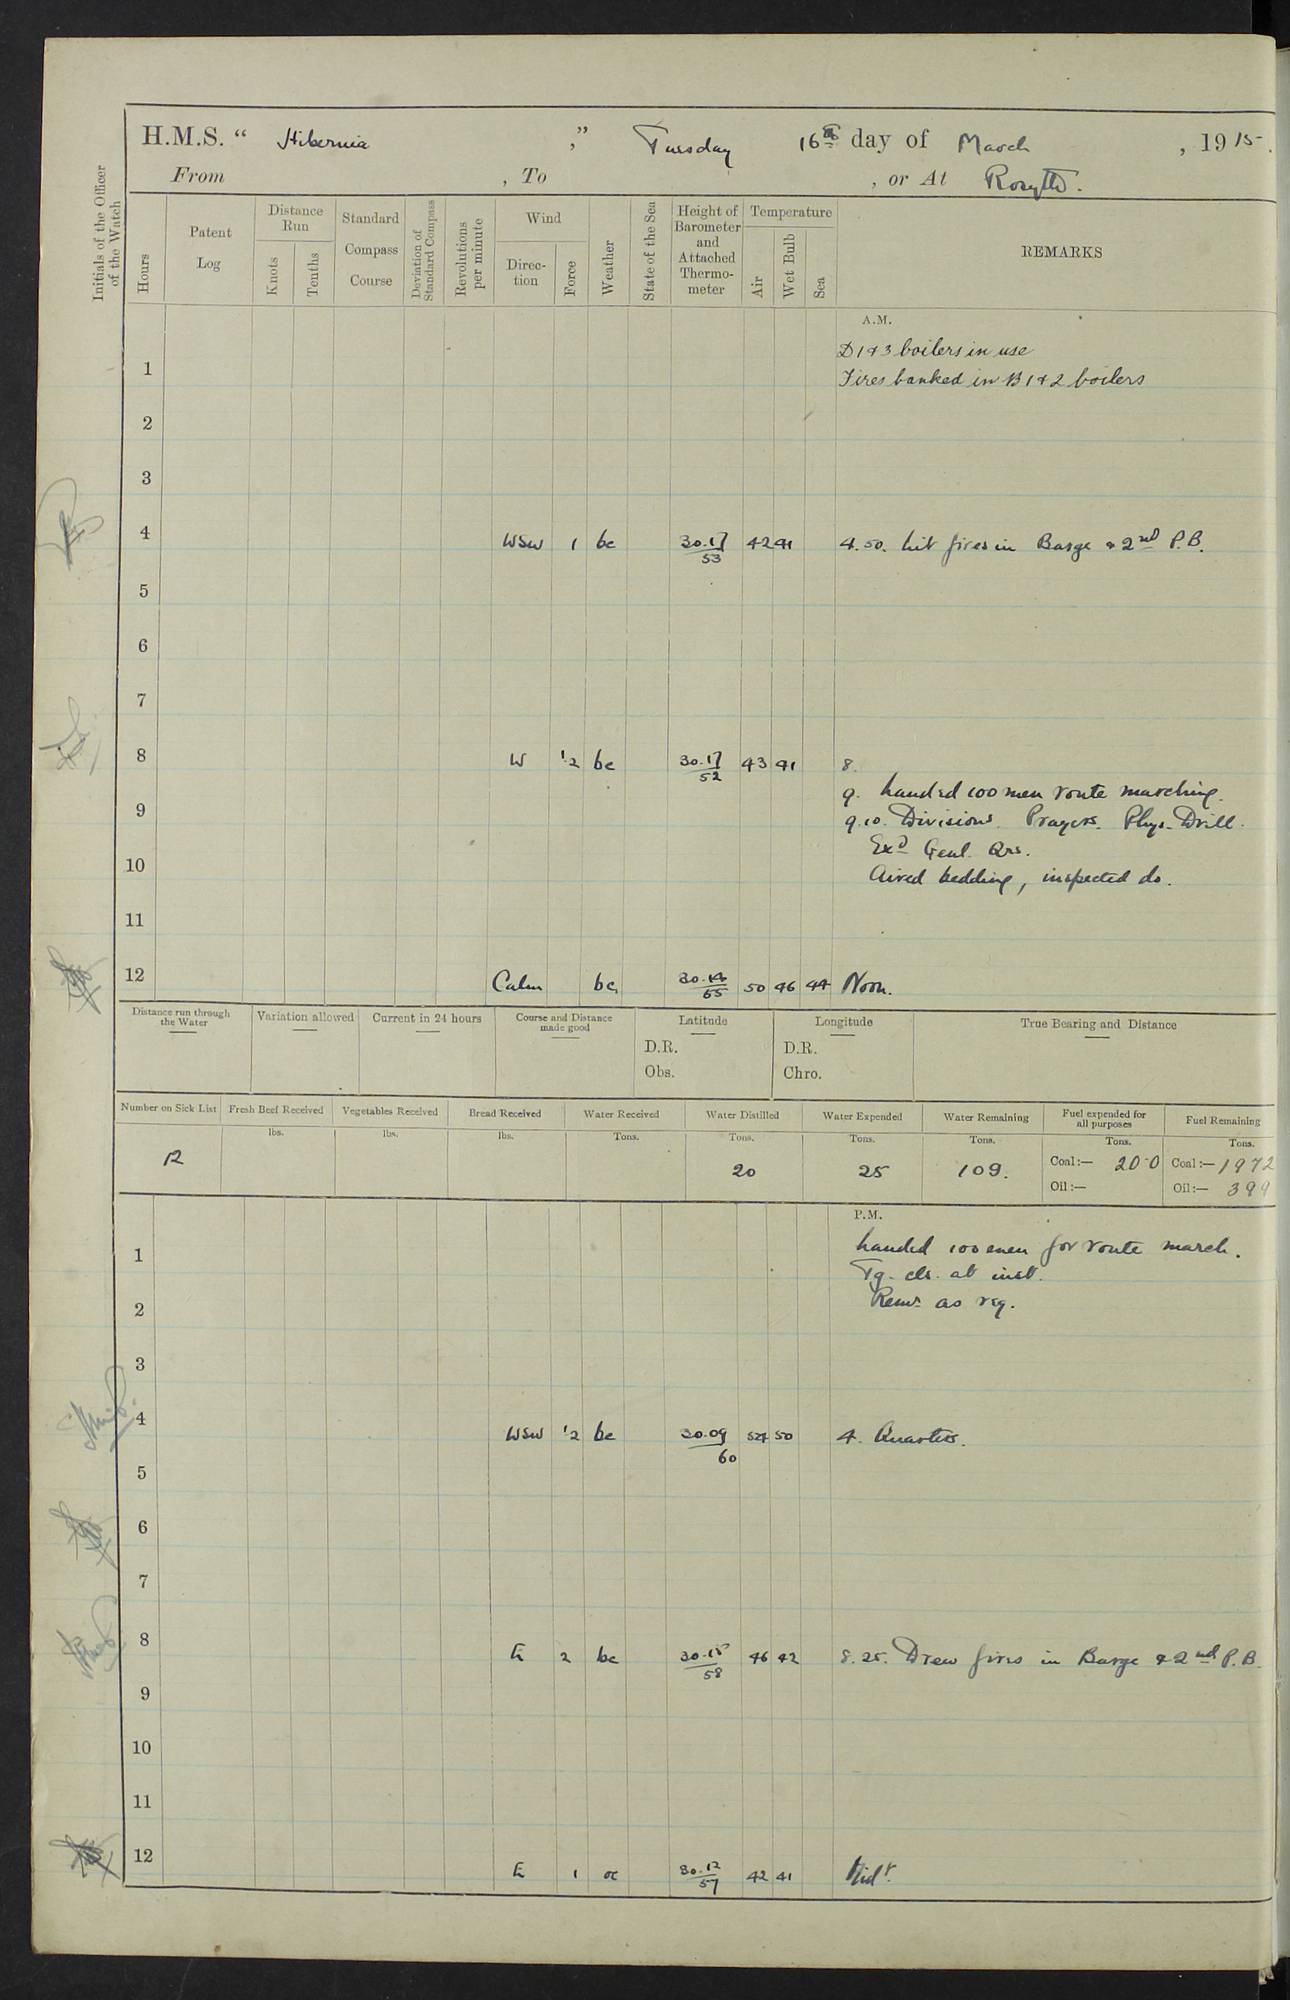 H.M.S. “ Hibernia ,” Tuesday 16th day of March , 1915.
From , To , or At Rosyth.
Initials of the Officer of the Watch
Hours
Patent Log
Distance Run
Knots
Tenths
Standard Compass Course
Deviation of Standard Compass
Revolutions per minute
Wind
Direc-tion
Force
Weather
State of the Sea
Height of Barometer and Attached Thermo-meter
Temperature
Air
Wet Bulb
Sea
REMARKS
A.M.
D 1 & 3 boilers in use
1
Fires banked in B 1 & 2 boilers
2
3
4 WSW 1 bc 30.17 53 42 41 4.50. Lit fires in Barge & 2nd P.B.
5
6
7
8 W 1-2 bc 30.17 52 43 41 8.
9. Landed 100 men route marching.
9 9.10. Divisions. Prayers. Phys. Drill.
Exd Genl. Qrs.
10 Aired bedding, inspected do.
11
12 Calm bc 55 50 46 44 Noon.
Distance run through the Water
Variation allowed
Current in 24 hours
Course and Distance made good
Latitude
D.R.
Obs.
Longitude
D.R.
Chro.
True Bearing and Distance
Number on Sick List Fresh Beef Received Vegetables Received Bread Received Water Received Water Distilled Water Expended Water Remaining Fuel expended for all purposes Fuel Remaining
lbs. lbs. lbs. Tons. Tons. Tons. Tons. Tons. Tons.
12 20 25 109. Coal:— 20·0 Coal:— 1972
Oil:— Oil:— 399
P.M.
1 Landed 100 men for route march.
Tg. cls. at inst.
2 Remr as req.
3
4 WSW 1-2 bc 30.09 60 52 50 4. Quarters.
5
6
7
8 E 2 bc 30.15 58 46 42 8.25. Drew fires in Barge & 2nd P.B.
9
10
11
12 E 1 oc 30.12 57 42 41 Midt.